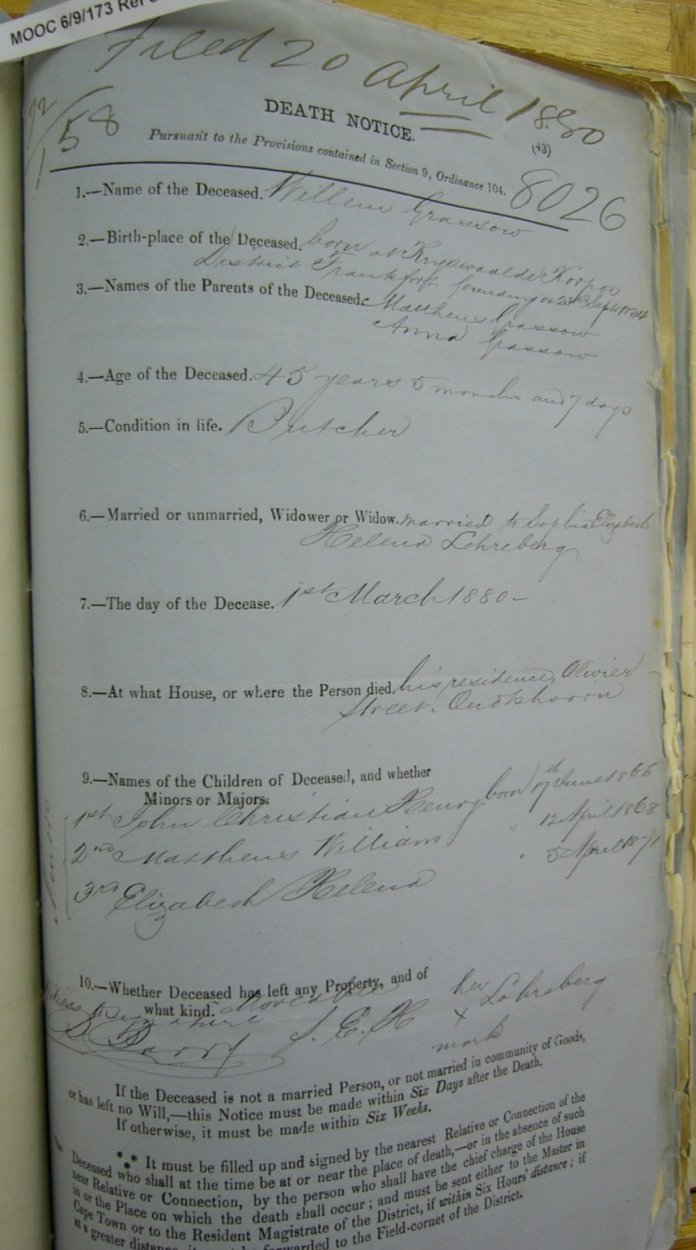 MOOC 6/9/173 Ref
Filed 20 April 1880
158
DEATH NOTICE.
(43)
Pursuant to the Provisions contained in Section 9, Ordinance 104.
8026
1.—Name of the Deceased. Willem Grassow
2.—Birth-place of the Deceased. born at
District Frankfort Germany on Sept 1834
3.—Names of the Parents of the Deceased. Mattheus Grassow
Anna Grassow
4.—Age of the Deceased. 45 years 5 months and 7 days
5.—Condition in life. Butcher
6.—Married or unmarried, Widower or Widow. married to Sophia Elizabeth
Helena Lohreberg
7.—The day of the Decease. 1st March 1880 –
8.—At what House, or where the Person died. his residence, Olivier
Street. Oudtshoorn
9.—Names of the Children of Deceased, and whether
Minors or Majors.
1st John Christian Henry born 17th June 1866
2nd Mattheus William " 12 April 1868
3rd Elizabeth Helena " 5 April 1871
10.—Whether Deceased has left any Property, and of
what kind. Moveable
Witness to signature
her
S. E. H × Lohreberg
mark
If the Deceased is not a married Person, or not married in community of Goods,
or has left no Will,—this Notice must be made within Six Days after the Death.
If otherwise, it must be made within Six Weeks.
⁂ It must be filled up and signed by the nearest Relative or Connection of the
Deceased who shall at the time be at or near the place of death,—or in the absence of such
near Relative or Connection, by the person who shall have the chief charge of the House
in or the Place on which the death shall occur; and must be sent either to the Master in
Cape Town or to the Resident Magistrate of the District, if within Six Hours' distance; if
at a greater distance, it must be forwarded to the Field-cornet of the District.